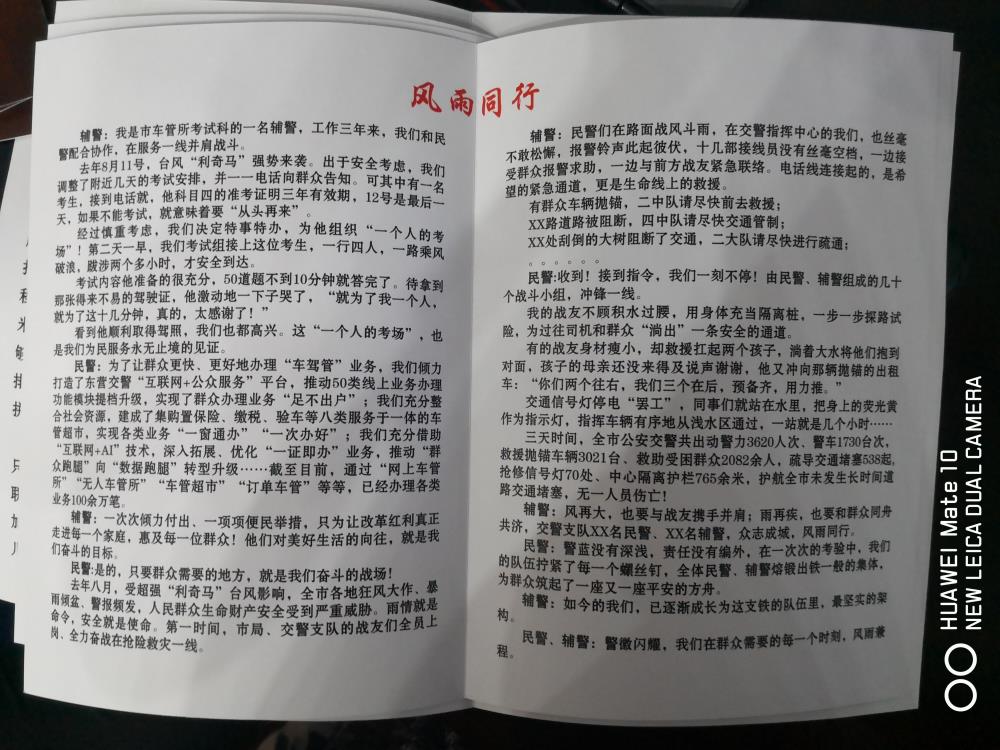 风雨同行
辅警：我是市车管所考试科的一名辅警，工作三年来，我们和民
警配合协作，在服务一线并肩战斗。
去年8月11号，台风“利奇马”强势来袭。出于安全考虑，我们
调整了附近几天的考试安排，并一一电话向群众告知。可其中有一名
考生，接到电话就，他科目四的准考证明三年有效期，12号是最后一
天，如果不能考试，就意味着要“从头再来”。
经过慎重考虑，我们决定特事特办，为他组织“一个人的考
场”！第二天一早，我们考试组接上这位考生，一行四人，一路乘风
破浪，跋涉两个多小时，才安全到达。
考试内容他准备的很充分，50道题不到10分钟就答完了。待拿到
那张得来不易的驾驶证，他激动地一下子哭了，“就为了我一个人，
就为了这十几分钟，真的，太感谢了！”
看到他顺利取得驾照，我们也都高兴。这“一个人的考场”，也
是我们为民服务永无止境的见证。
民警：为了让群众更快、更好地办理“车驾管”业务，我们倾力
打造了东营交警“互联网+公众服务”平台，推动50类线上业务办理
功能模块提档升级，实现了群众办理业务“足不出户”；我们充分整
合社会资源，建成了集购置保险、缴税、验车等八类服务于一体的车
管超市，实现各类业务“一窗通办”“一次办好”；我们充分借助
“互联网+AI”技术，深入拓展、优化“一证即办”业务，推动“群
众跑腿”向“数据跑腿”转型升级……截至目前，通过“网上车管
所”“无人车管所”“车管超市”“订单车管”等等，已经办理各类
业务100余万笔。
辅警：一次次倾力付出、一项项便民举措，只为让改革红利真正
走进每一个家庭，惠及每一位群众！他们对美好生活的向往，就是我
们奋斗的目标。
民警:是的，只要群众需要的地方，就是我们奋斗的战场！
去年八月，受超强“利奇马”台风影响，全市各地狂风大作、暴
雨倾盆、警报频发，人民群众生命财产安全受到严重威胁。雨情就是
命令，安全就是使命。第一时间，市局、交警支队的战友们全员上
岗、全力奋战在抢险救灾一线。
辅警：民警们在路面战风斗雨，在交警指挥中心的我们，也丝毫
不敢松懈，报警铃声此起彼伏，十几部接线员没有丝毫空档，一边接
受群众报警求助，一边与前方战友紧急联络。电话线连接起的，是希
望的紧急通道，更是生命线上的救援。
有群众车辆抛锚，二中队请尽快前去救援；
XX路道路被阻断，四中队请尽快交通管制；
XX处刮倒的大树阻断了交通，二大队请尽快进行疏通；
。。。。。。
民警:收到！接到指令，我们一刻不停！由民警、辅警组成的几十
个战斗小组，冲锋一线。
我的战友不顾积水过腰，用身体充当隔离桩，一步一步探路试
险，为过往司机和群众“淌出”一条安全的通道。
有的战友身材瘦小，却救援扛起两个孩子，淌着大水将他们抱到
对面，孩子的母亲还没来得及说声谢谢，他又冲向那辆抛锚的出租
车：“你们两个往右，我们三个在后，预备齐，用力推。”
交通信号灯停电“罢工”，同事们就站在水里，把身上的荧光黄
作为指示灯，指挥车辆有序地从浅水区通过，一站就是几个小时……
三天时间，全市公安交警共出动警力3620人次、警车1730台次，
救援抛锚车辆3021台、救助受困群众2082余人，疏导交通堵塞538起，
抢修信号灯70处、中心隔离护栏765余米，护航全市未发生长时间道
路交通堵塞，无一人员伤亡！
辅警：风再大，也要与战友携手并肩；雨再疾，也要和群众同舟
共济，交警支队XX名民警、XX名辅警，众志成城，风雨同行。
民警：警蓝没有深浅，责任没有编外，在一次次的考验中，我们
的队伍拧紧了每一个螺丝钉，全体民警、辅警熔锻出铁一般的集体，
为群众筑起了一座又一座平安的方舟。
辅警：如今的我们，已逐渐成长为这支铁的队伍里，最坚实的架
构。
民警、辅警：警徽闪耀，我们在群众需要的每一个时刻，风雨兼
程。
HUAWEI Mate 10
NEW LEICA DUAL CAMERA